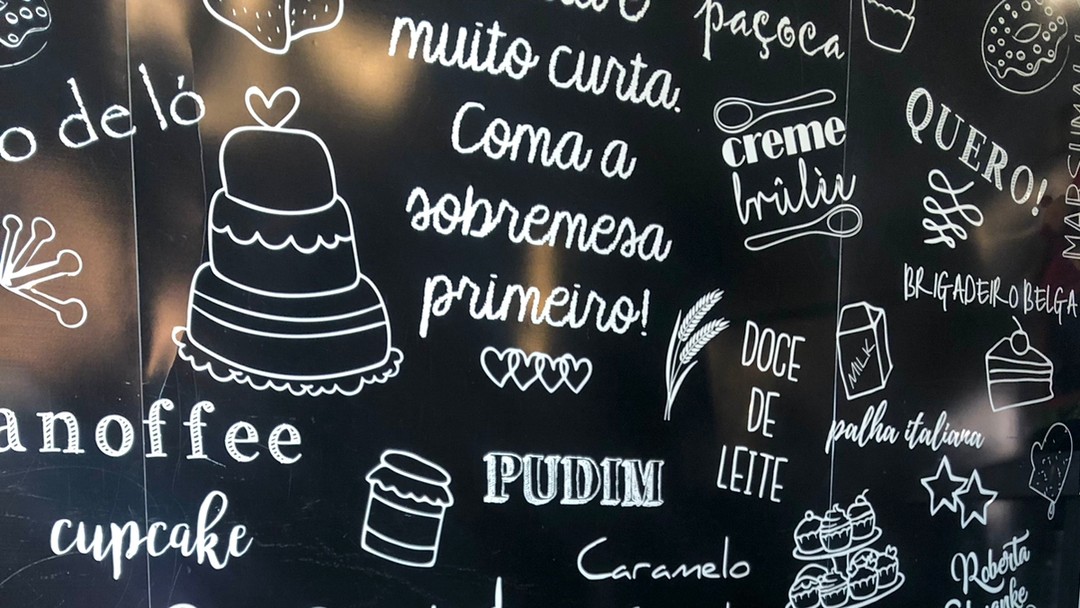 muito curta.
Coma a
sobremesa
primeiro!
paçoca
o de ló
creme
brûlèr
QUERO!
BRIGADEIRO BELGA
MILK
DOCE
DE
LEITE
palha italiana
anoffee
PUDIM
cupcake
Caramelo
Roberta